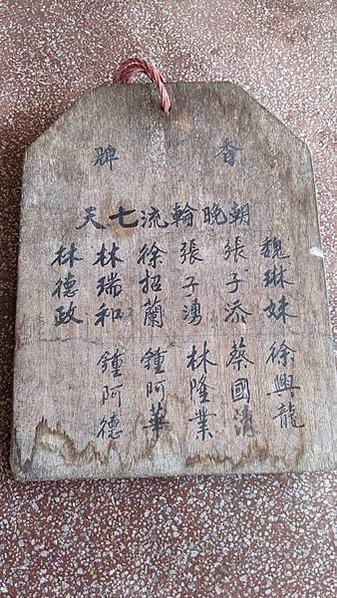 香牌
朝晚輪流七天
魏琳妹 徐興龍
張子添 蔡國清
張子湧 林隆業
徐招蘭 鍾阿華
林瑞和 鍾阿德
林德政